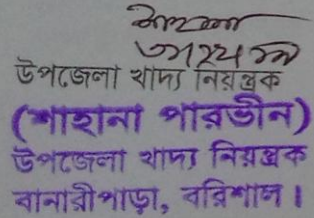 উপজেলা খাদ্য নিয়ন্ত্রক
(শাহানা পারভীন)
উপজেলা খাদ্য নিয়ন্ত্রক
বানারীপাড়া, বরিশাল।